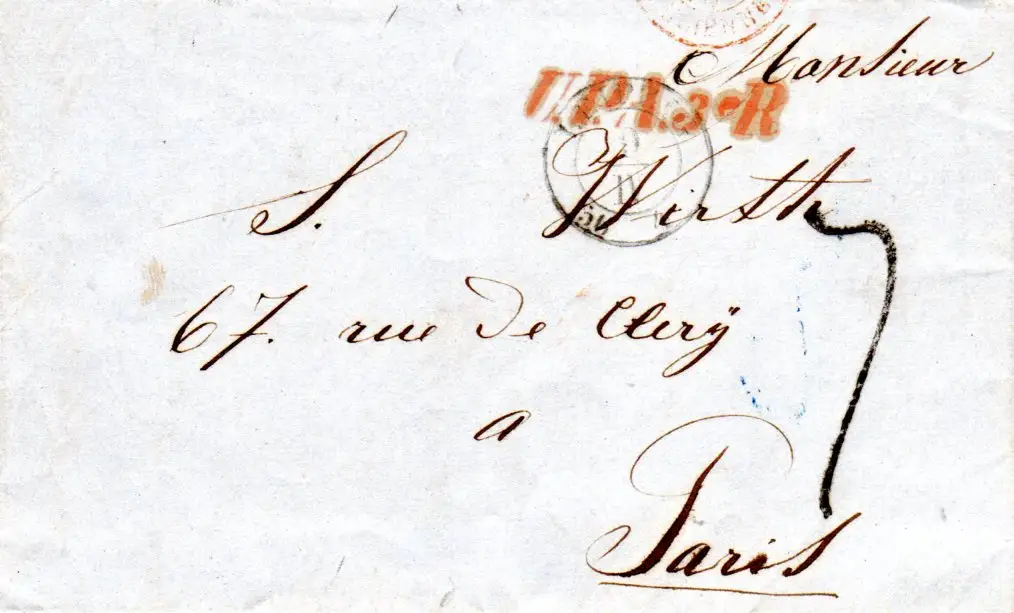 Monsieur
U.P.A. 3e R
S. Wirth
67. rue de Clerÿ
a
Paris
7